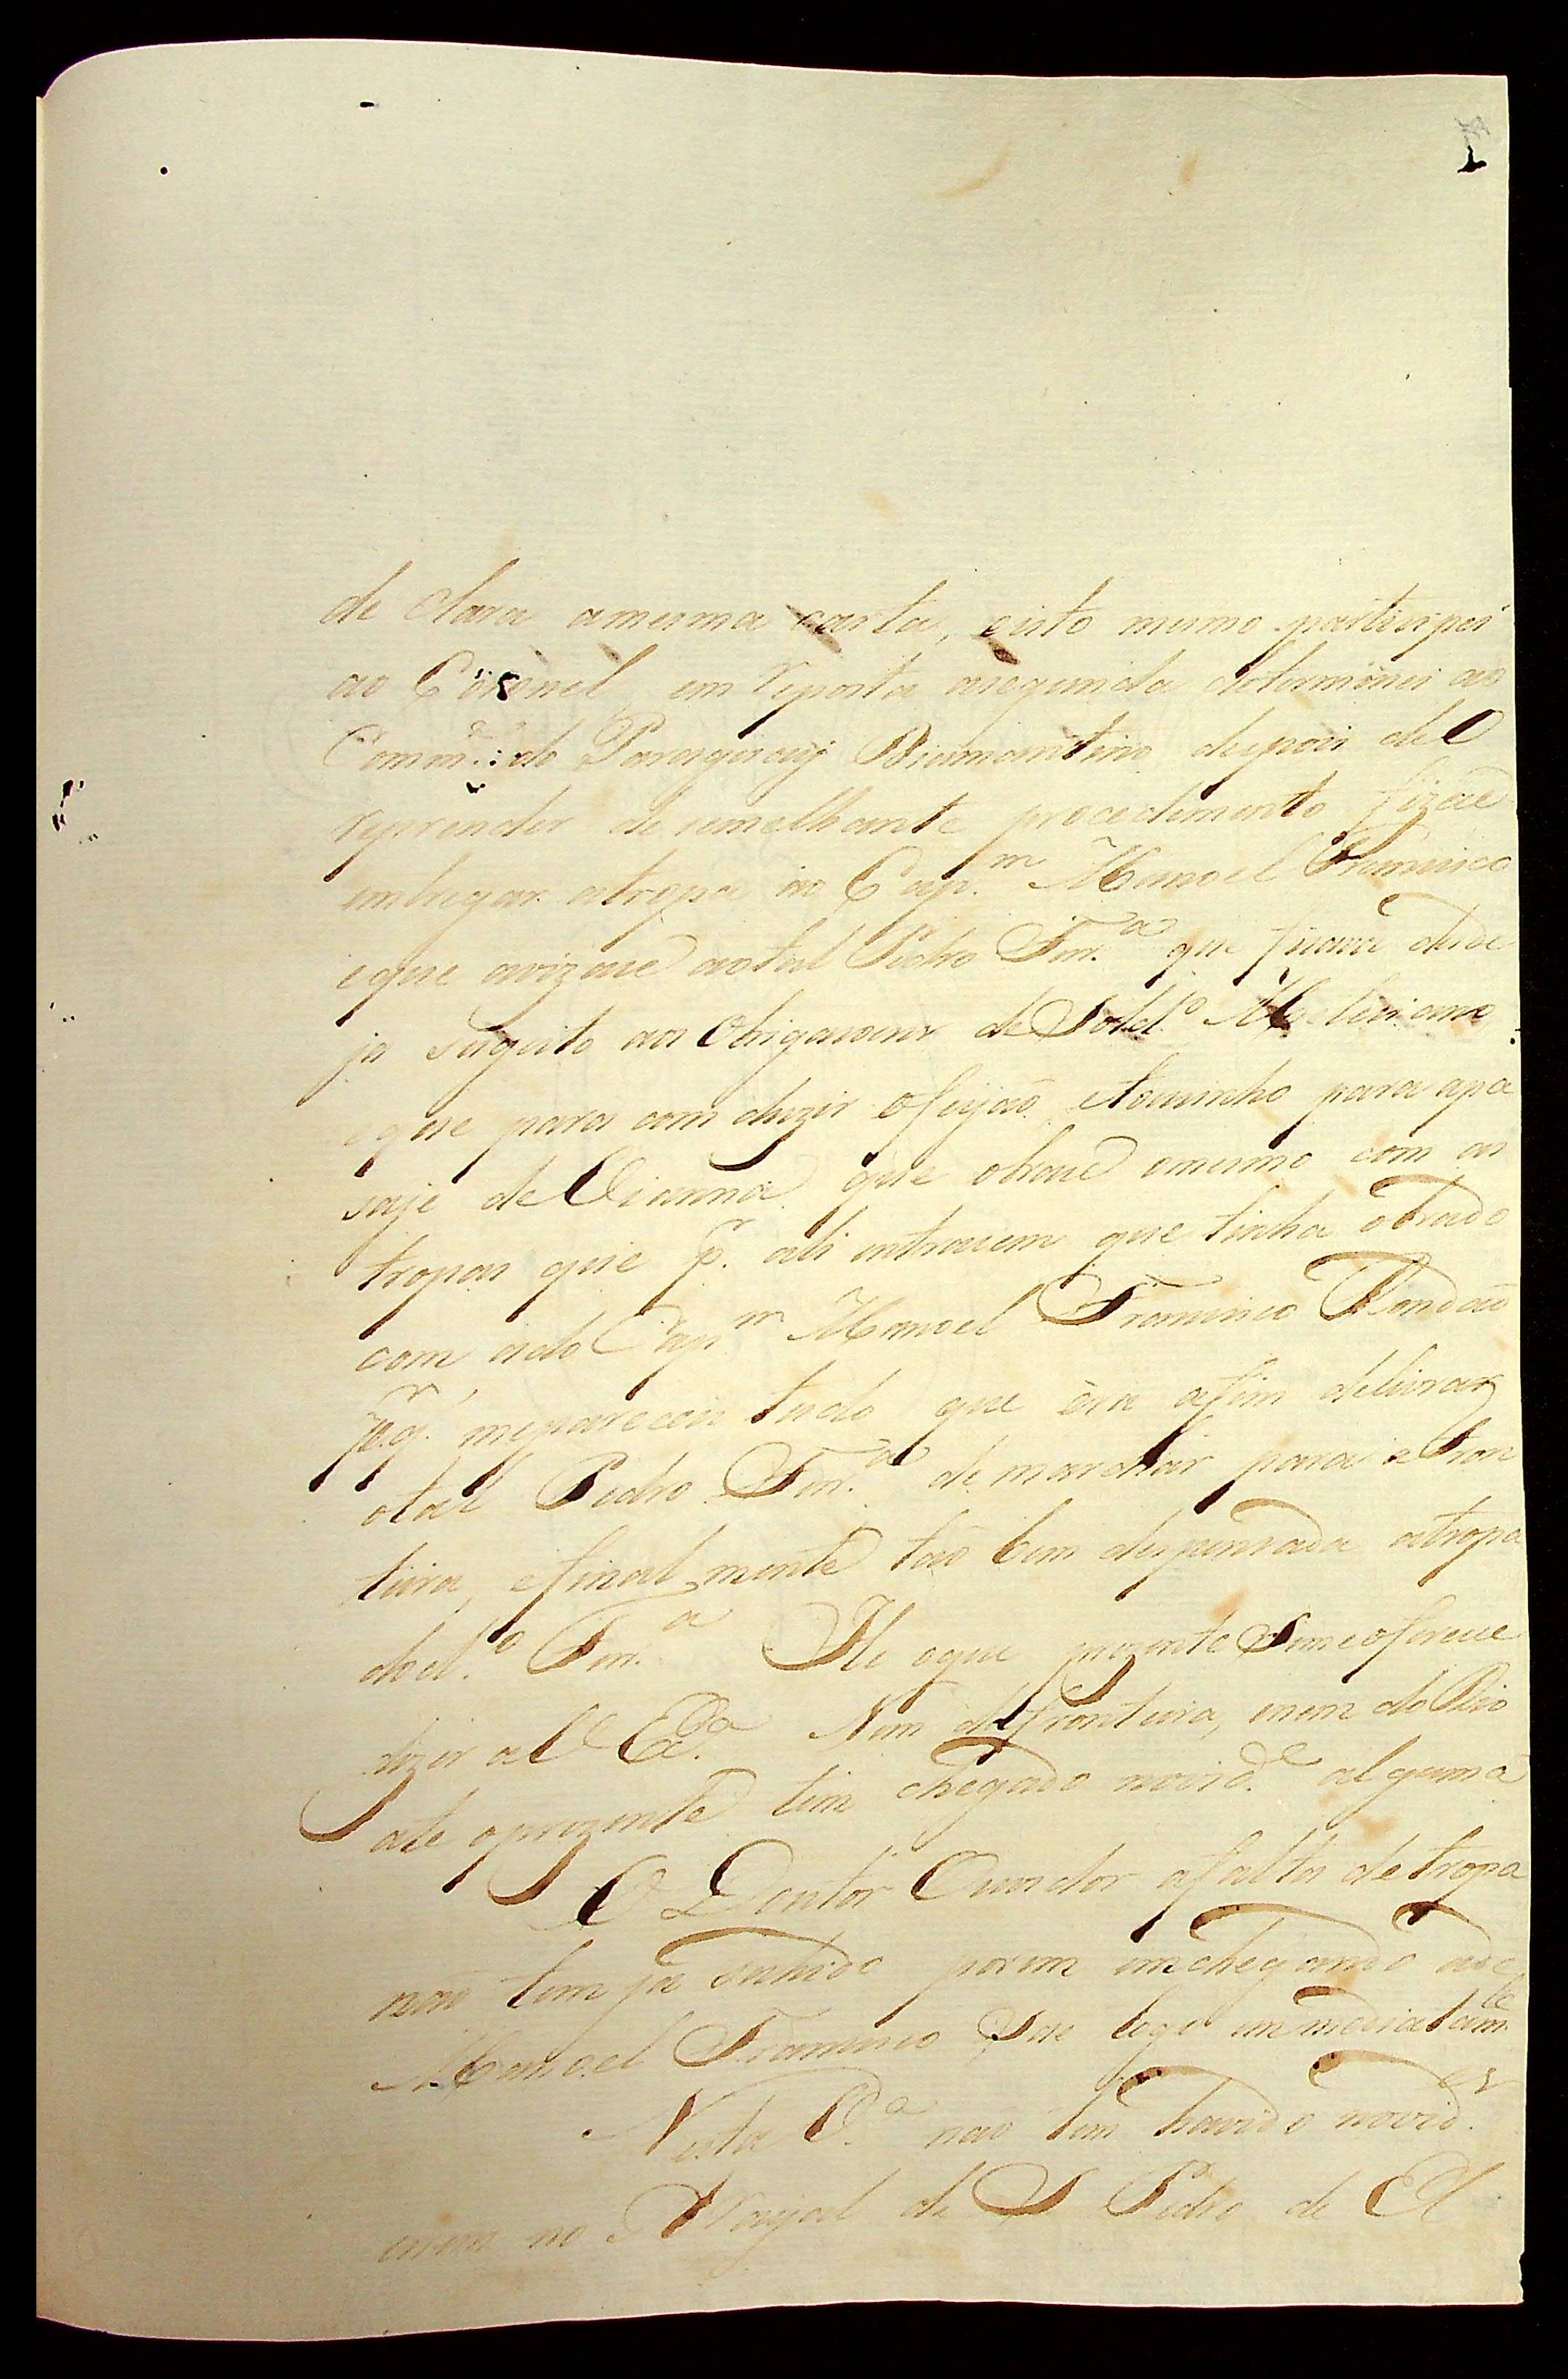 de clara amesma carta, eisto mesmo partecipei
ao Coronel em reposta asegunda determinei ao
Comm.e do Paraguay Diamantino depois de o
reprender de semelhante procedimento fizece
entregar atropa ao Cap.m Manoel Francisco
eque avizace aotal Pedro Frr.a que ficava desde
ja sugeito as Obrigasoens de Sold.o Meliciano
eque para com duzir ofeijaõ etoucinho para apa
saje de Vianna que obrace omesmo com as
tropas que p.r ali entracem que tinha obrado
com ado Cap.m Manoel Francisco Rondaõ
p.r q.' mepareceu tudo que era afim delivrar
otal Pedro Frr.a de marchar para a Fron
teira, efinal mente taõ bem despensada atropa
do d.o Frr.a He oque prezente Semeoferece
dizer aV Ex.a Nem daFronteira, enem do Rio
ate oprezente tem chegado novid.e alguma
O Doutor Ouvidor afalta de tropa
naõ tem ja sahido porem emchegando ade
Manoel Francisco Sae logo immediatam.te
Nesta V.a naõ tem havido novid.es
em no Arrayal de S Pedro de El